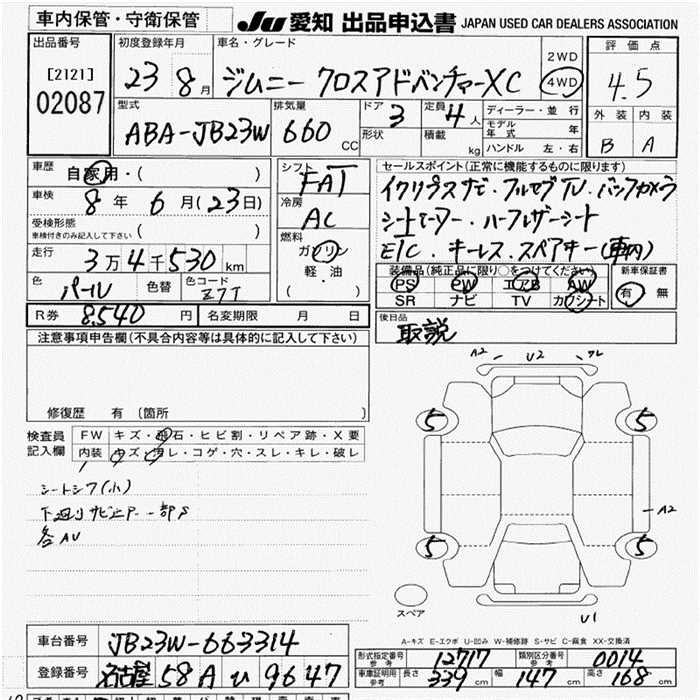 車内保管・守衛保管 JU 愛知 出品申込書 JAPAN USED CAR DEALERS ASSOCIATION
出品番号 初度登録年月 車名・グレード 評価点
[2121] 23 8月 ジムニー クロスアドベンチャーXC 2WD 4WD 4.5
02087
型式 排気量 ドア 定員 ディーラー・並行 外装 内装
ABA-JB23W 660 CC 3 4人 モデル年式 年 B A
形状 積載 kg ハンドル 左・右
車歴 自家用・( ) シフト FAT セールスポイント(正常に機能するものに限ります)
車検 8年 6月(23日) 冷房 AC イクリプスナビ・フルセグTV・バックカメラ
受検形態 車検付きのみ記入して下さい ( ) シートヒーター・ハーフレザーシート
走行 3万4千530km 燃料 ガソリン 軽・油 ( ) ETC・キーレス・スペアキー(車内)
色 パール 色替 色コード Z7T 装備品(純正品に限り○をつけてください) 新車保証書
PS PW エアB AW 有 無
SR ナビ TV カワシート
R券 8,540円 名変期限 月 日 後日品
取説
注意事項申告欄(不具合内容等は具体的に記入して下さい)
修復歴 有 (箇所 )
検査員記入欄 FW キズ・飛石・ヒビ割・リペア跡・X要
内装 キズ・汚レ・コゲ・穴・スレ・キレ・破レ
シートシワ(小)
下廻りサビ
各AU
A2 U2
5 5
A2
5 5
スペア U1
A-キズ E-エクボ U-凹み W-補修跡 S-サビ C-腐食 XX-交換済
車台番号 JB23W-663314
登録番号 名古屋 58A い 9647
形式指定番号 参考 12717 類別区分番号 参考 0014
車庫証明用 参考 長さ 339cm 幅 147cm 高さ 168cm